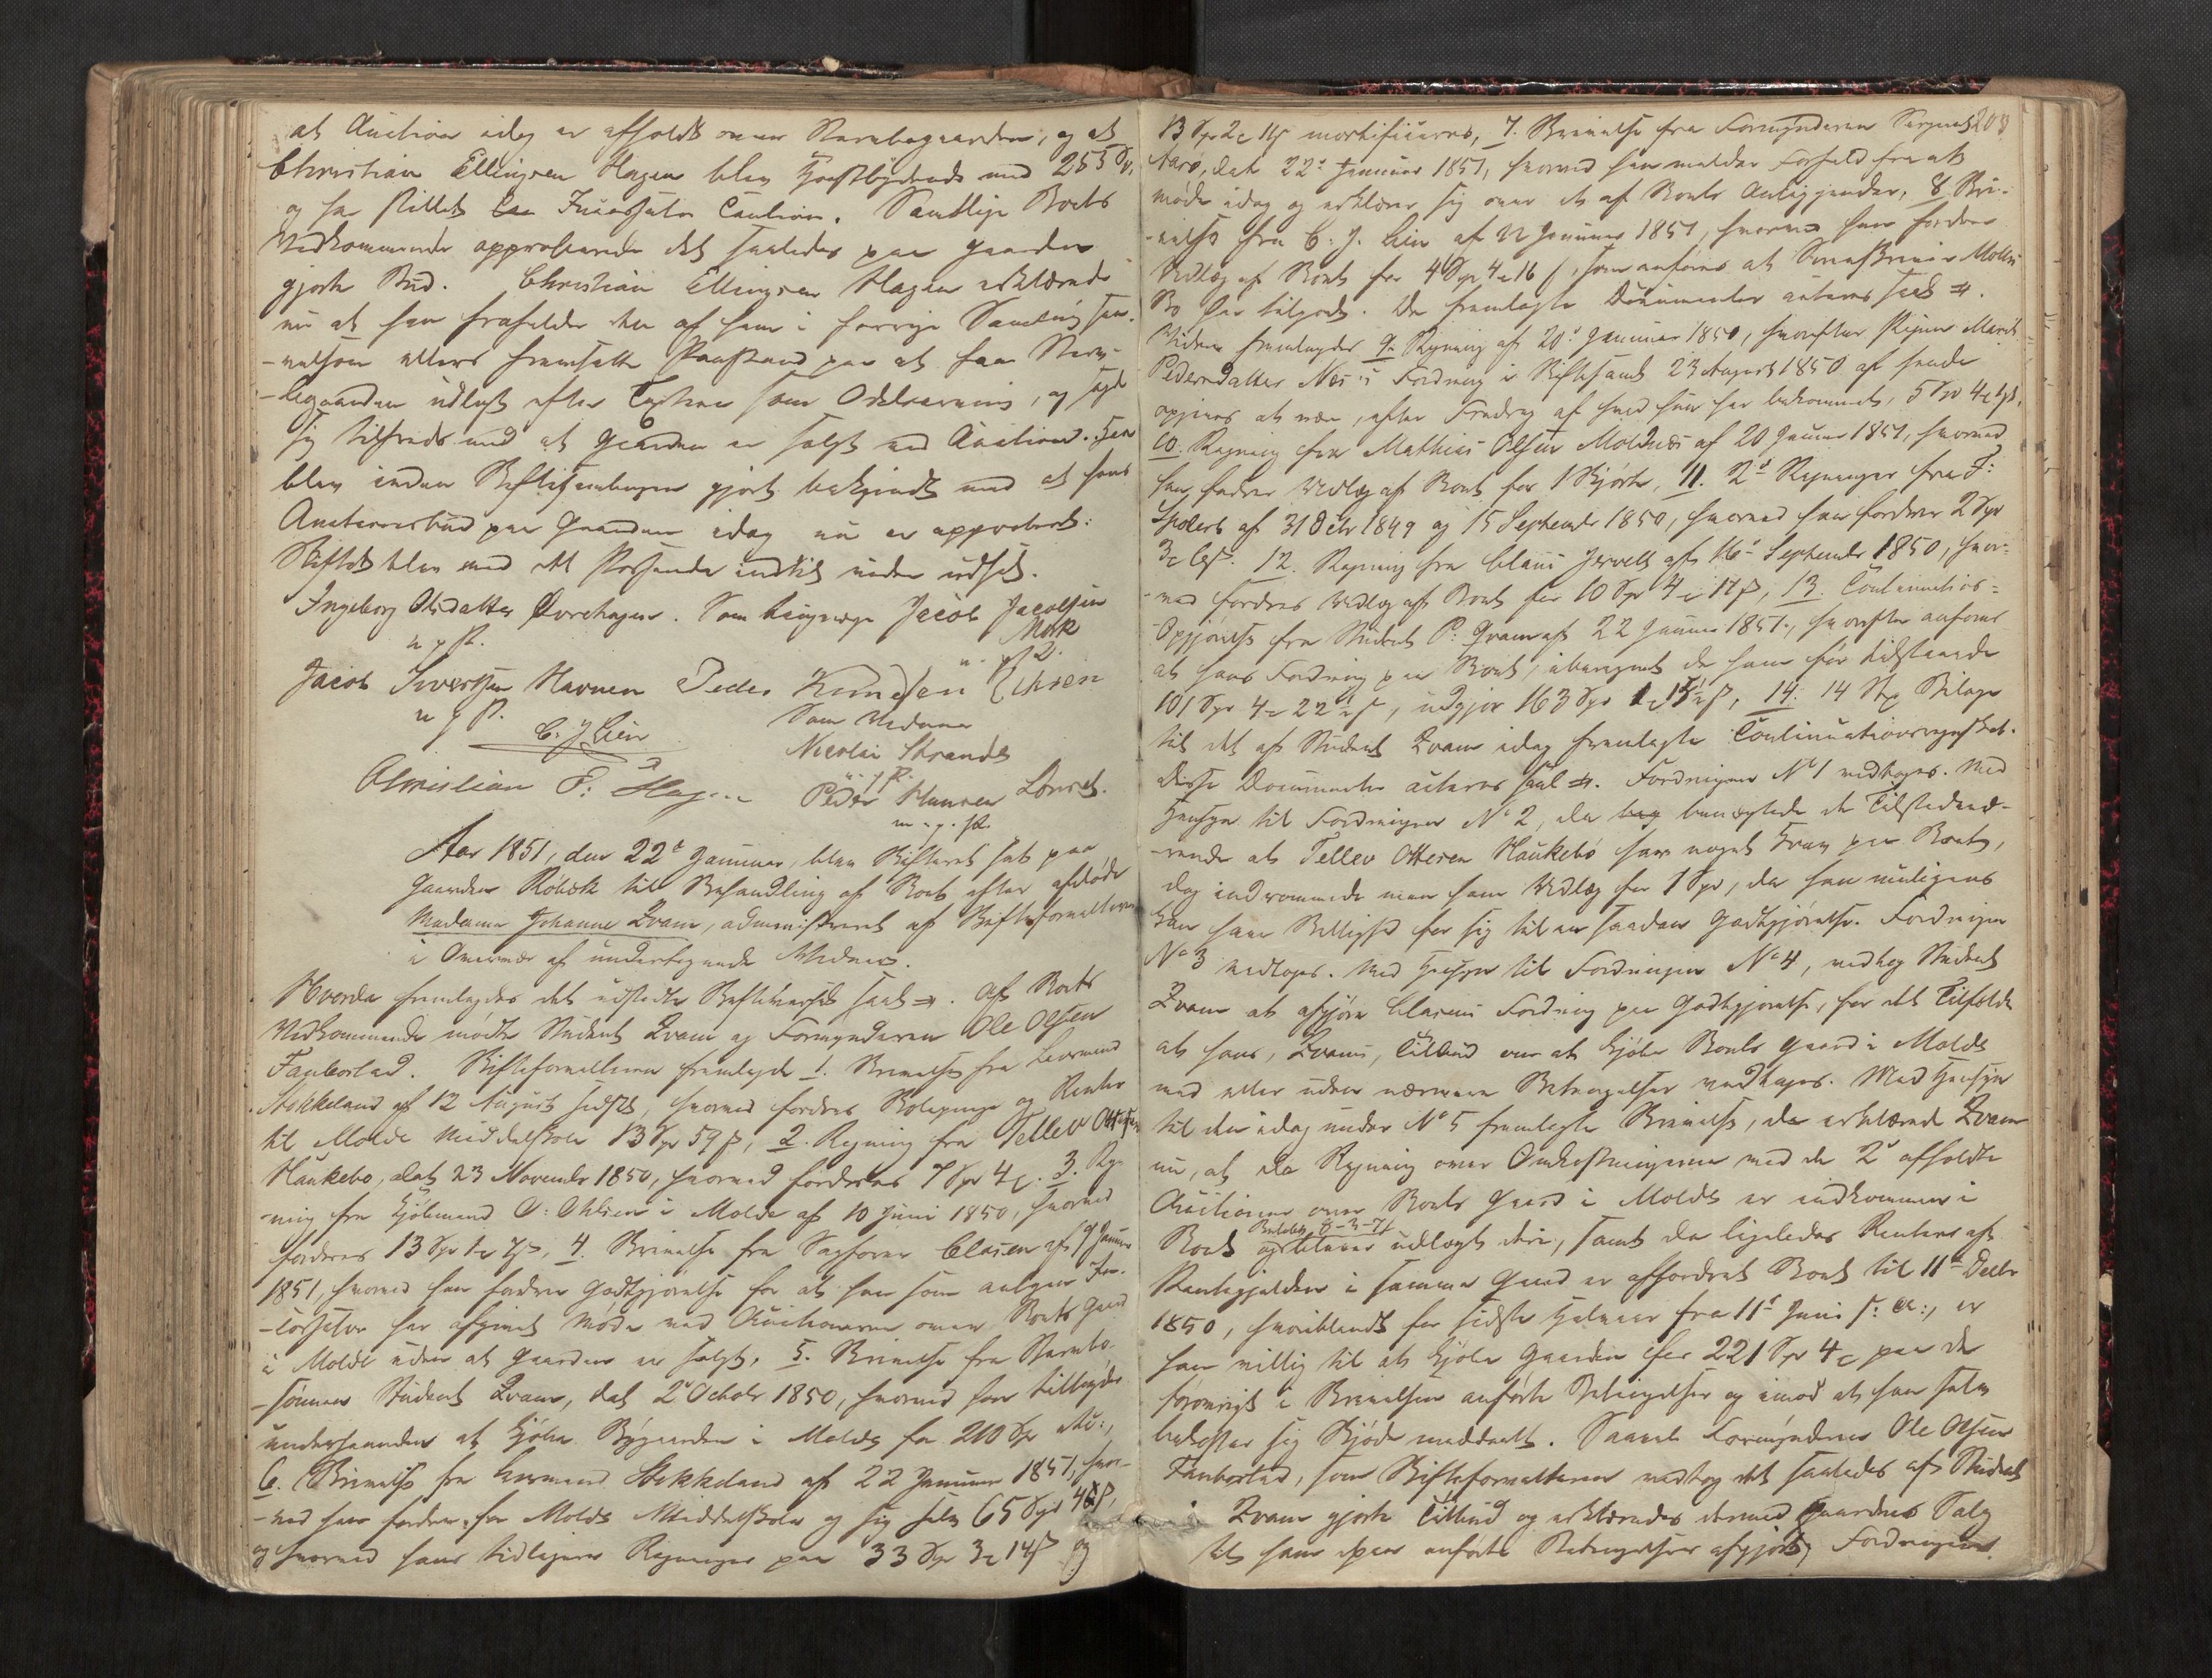 at Auction idag er afholdt over Stervbogaarden, og at
Christian Ellingsen Hagen blev Høistbydende med 255 Spd,
og har stillet Incassator Caution. Samtlige Boets
Vedkommende approberede det saaledes paa Gaarden
gjorte Bud. Christian Ellingsen Hagen erklærede
nu at han frafalder den af ham i forrige Samling
ellers fremsatte Paastand paa at faae Sterv-
-bogaarden udlagt efter Taxten som Odelsarving, og
sig tilfreds med at Gaarden er solgt ved Auction. Han
blev inden Skiftesamlingen gjort bekjendt med at hans
Auctionsbud paa Gaarden idag nu er approberet.
Skiftet blev med dets Passerede indtil videre udsat.
Ingeborg Olsdatter Hagen. Som Laugværge Jacob Jacobsen
m. p. P. Mork
Jacob Iversen Havnen Peder Knudsen Eiksen
m. p. P. Som Vidner
C. J. Lien Nicolai Strande
Christian E: Hagen m. p. P. Peder Hansen Lønset.
m. p. P.
Aar 1851, den 22de Januar, blev Skifteret sat paa
Gaarden Røbæk til Behandling af Boet efter afdøde
Madame Johanne Qvam, administreret af Skifteforvalteren
i Overvær af undertegnede Vidner.
Hvorda fremlagdes det udstedte Skiftevarsel saal. Af Boets
Vedkommende mødte Student Qvam og Formynderen Ole Olsen
Fanbostad. Skifteforvalteren fremlagde 1. Skrivelse fra Lensmand
Stokkeland af 12 August sidstl, hvorved fordres Skolepenge og Renter
til Molde Middelskole 13 Spd 59 ß, 2. Regning fra Tellev Ottesen
Haukebø, dat 23 November 1850, hvorved fordres 7 Spd 4 . 3. Reg-
-ning fra Kjøbmand O: Ohlsen i Molde af 10 Juni 1850, hvorved
fordres 13 Spd, 4. Skrivelse fra Sagfører Clasen af 19 Januar
1851, hvorved han fordrer Godtgjørelse for at han som antagen In-
-cassator har afgivet Møde ved Auctionerne over Boets Gaard
i Molde uden at Gaarden er solgt, 5. Skrivelse fra Stervbo-
-sønnen Student Qvam, dat 2de Octobr 1850, hvorved han tilbyder
underhaanden at kjøbe Bygaarden i Molde for 210 Spd,
6. Skrivelse fra Lensmand Stokkeland af 22 Januar 1851, hvor-
-ved han fordrer for Molde Middelskole og sig selv 65 Spd 48 ß,
og hvorved hans tidligere Regninger paa 33 Spd 3 14 ß og
13 Spd 2 11 ß mortificeres, 7. Skrivelse fra Formynderen Sergeant 203
Aarø, dat 22de Januar 1851, hvorved han melder Forfald fra at
møde idag og erklærer sig over et af Boets Anliggender, 8. Skri-
-velse fra C. J. Lien af 22 Januar 1851, hvorved han fordrer
Udlæg af Boet for 4 Spd 4 16 ß, som anføres at Sorenskriver
Bo har tilgode. De fremlagte Documenter acteres saal.
Videre fremlagdes 9. Regning af 20de Januar 1850, hvorefter Pigen Marit
Pedersdatter Næs's Fordring i Skiftesaml 23 August 1850 af hende
opgives at være, efter Fradrag af hvad hun har bekommet, 5 Spd 4
10. Regning fra Mathias Olsen Moldnæs af 20 Januar 1851, hvorved
han fordrer Udlæg af Boet for 1 Skjorte, 11. 2de Regninger fra F:
af 31 Octbr 1849 og 15 September 1850, hvorved han fordrer 2 Spd
3. 12. Regning fra Claus Jervell af 16de September 1850, hvor-
-ved fordres Udlæg af Boet for 10 Spd 4 17 ß, 13. Continuations-
-Opgjørelse fra Student P: Qvam af 22 Januar 1851, hvorefter anføres
at hans Fordring paa Boet, iberegnet de ham før tilstaaede
101 Spd 4 22½ ß, udgjør 163 Spd 1 15½ ß, 14. 14 Stk Bilage
til det af Student Qvam idag fremlagte Continuationsregnskab.
Disse Documenter acteres saal. Fordringen No 1 vedtoges. Med
Hensyn til Fordringen No 2, da benægtede de Tilstedevæ-
-rende at Tellev Ottesen Haukebø har noget Krav paa Boet,
dog indrømmede man ham Udlæg for 1 Spd, da han muligens
kan have Billighed for sig til en saadan Godtgjørelse. Fordringen
No 3 vedtoges. Med Hensyn til Fordringen No 4, vedtog Student
Qvam at afgjøre Clasens Fordring paa Godtgjørelse, for det Tilfælde
at hans, Qvams, Tilbud om at kjøbe Boets Gaard i Molde
med eller uden nærmere Betingelser vedtages. Med Hensyn
til den idag under No 5 fremlagte Skrivelse, da erklærede Qvam
nu, at da Regning over Omkostningerne med de 2de afholdte
Auctioner over Boets Gaard i Molde er indkommen i
Boet Beløb 8-3-71 og udlagt deri, samt da ligeledes Renterne af
Pantegjelden i samme Gaard er affordret Boet til 11te Decbr
1850, hvoriblandt for sidste Halvaar fra 11te Juni s: A:, er
han villig til at kjøbe Gaarden for 221 Spd 4 paa de
forøvrigt i Skrivelsen anførte Betingelser og imod at han selv
bekoster sig Skjøde meddeelt. Saavel Formynderen Ole Olsen
Fanbostad, som Skifteforvalteren vedtog det saaledes af Student
Qvam gjorte Tilbud og erklæredes dermed Gaardens Salg
til ham paa anførte Betingelser afgjort. Fordringerne